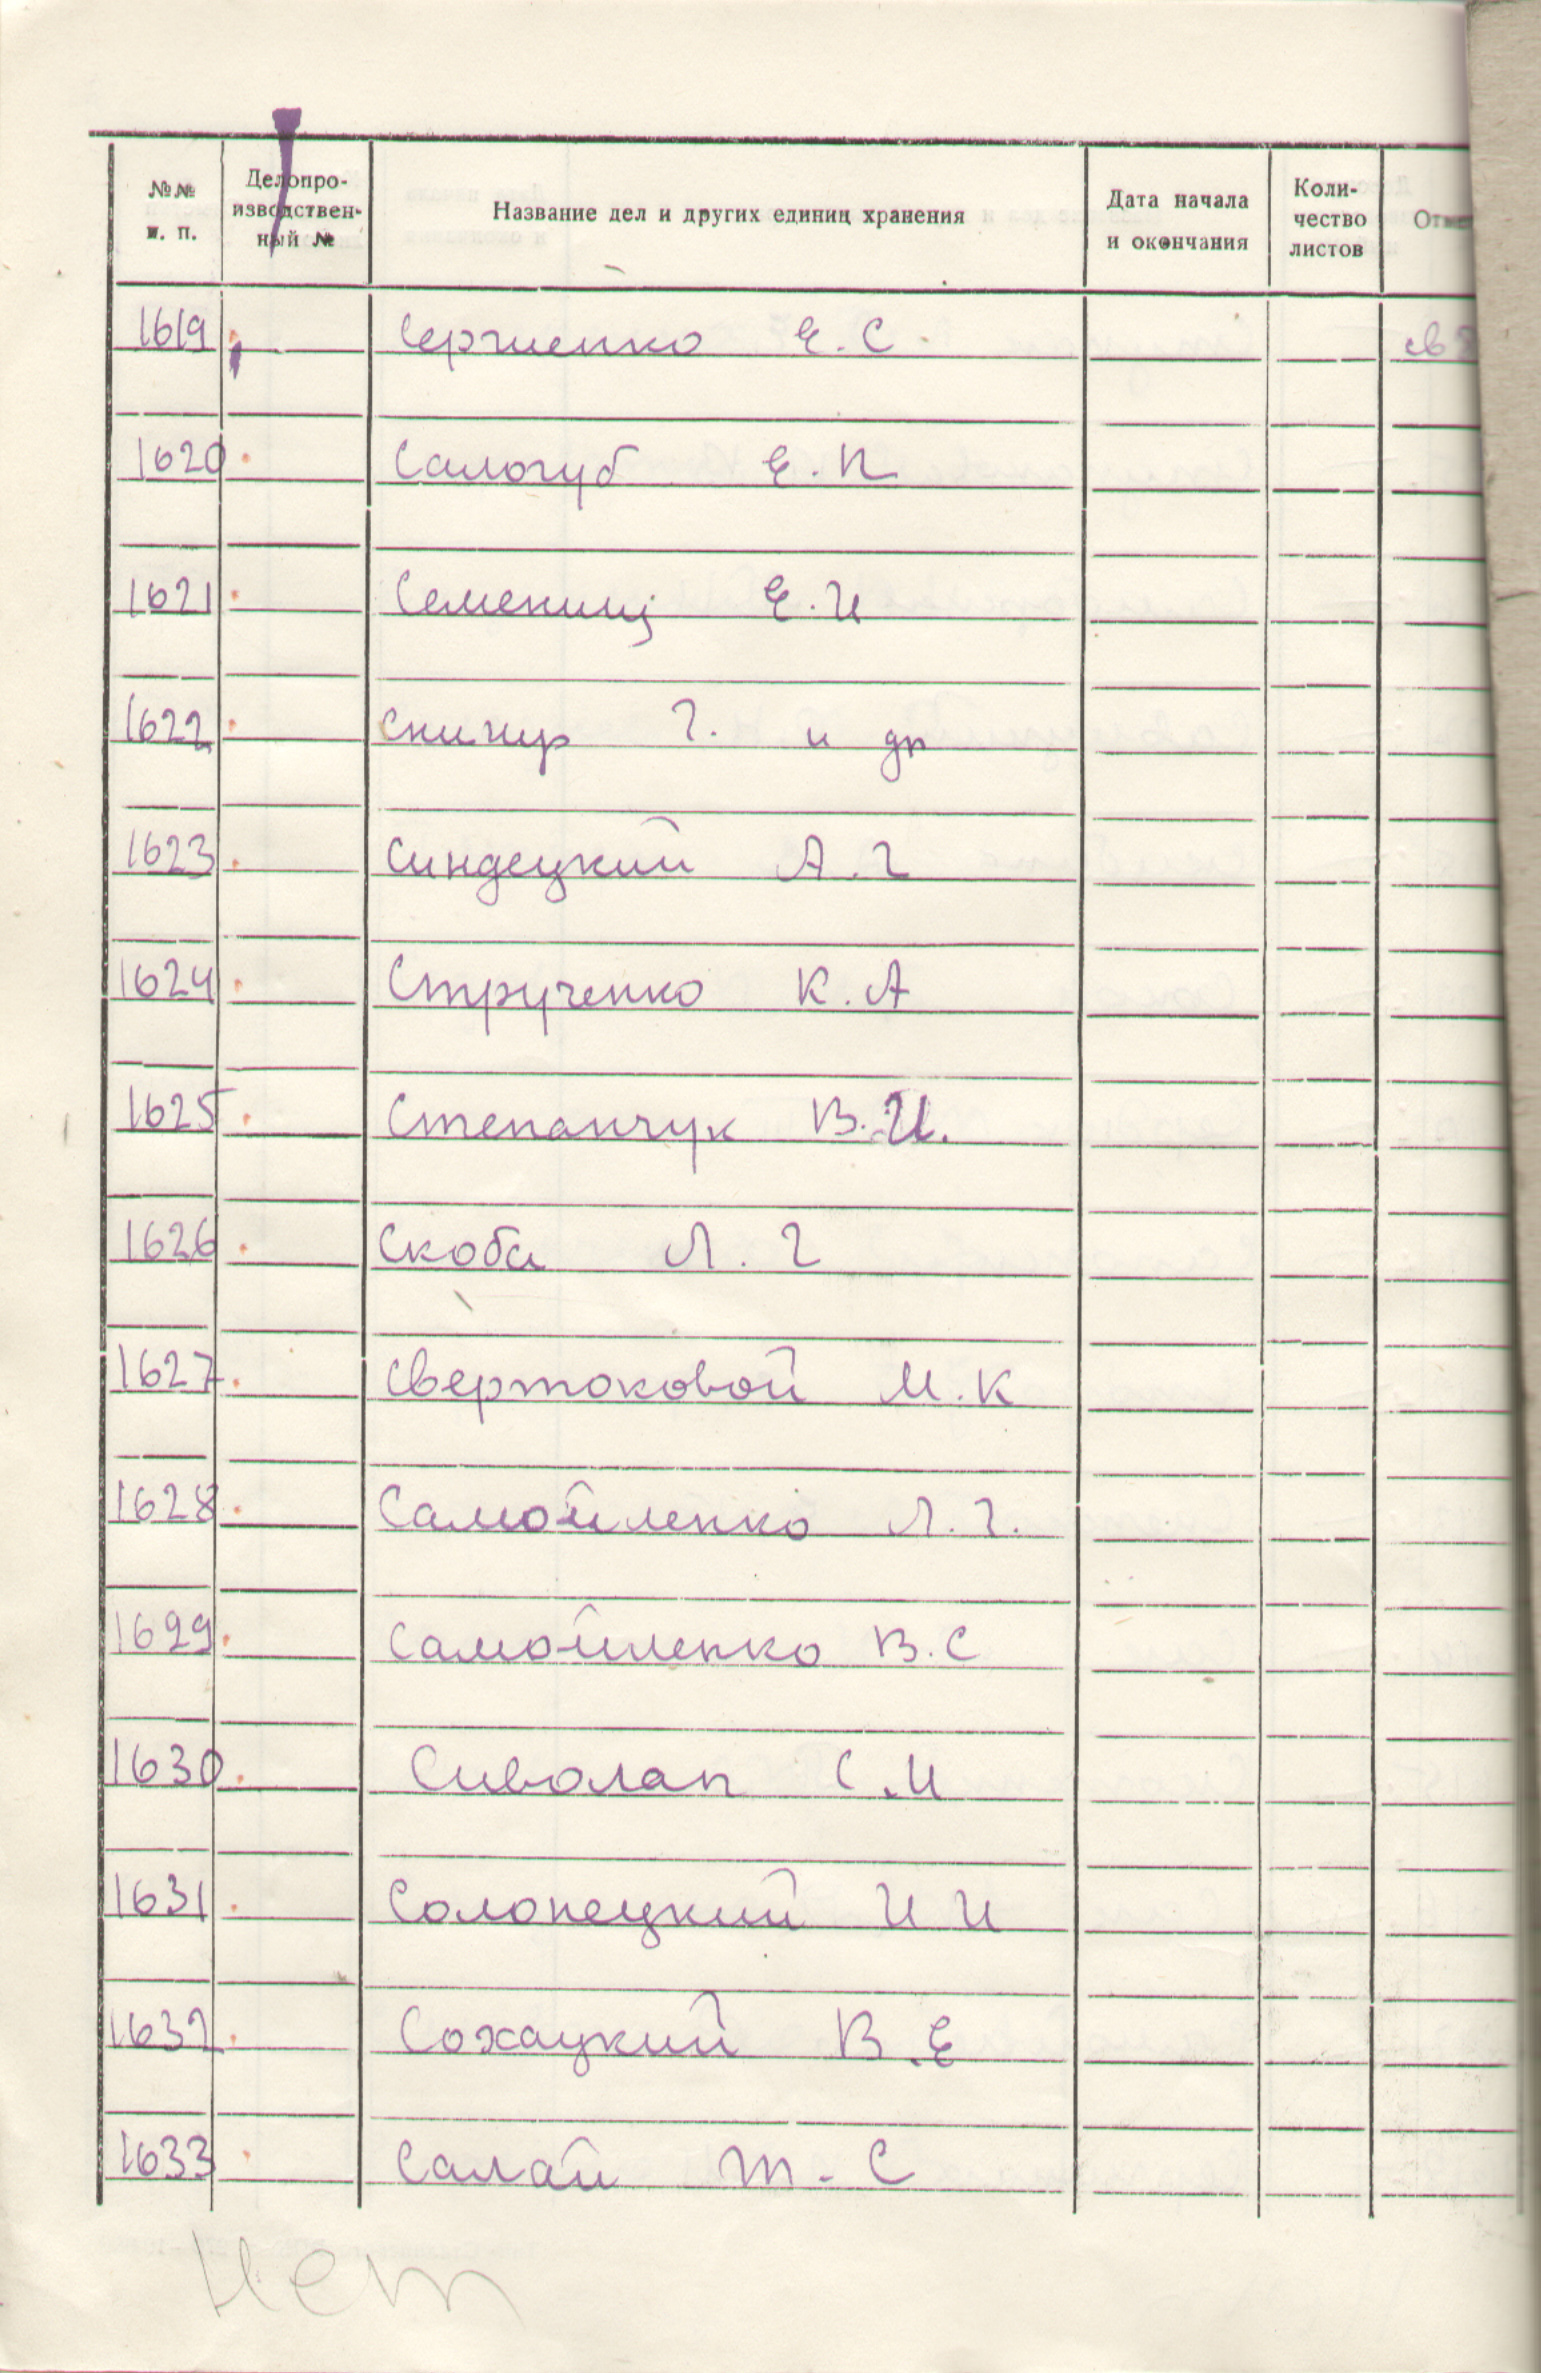 №№ п. п. Делопроизводственный № Название дел и других единиц хранения Дата начала и окончания Количество листов
1619 Сергиенко Е. С
1620 Салогуб Е. П
1621 Семениц Е. И
1622 Снигур Г. и др
1623 Синдецкий А. Г
1624 Струченко К. А
1625 Степанчук В. И.
1626 Скоба Л. Г
1627 Свертоковой М. К
1628 Самойленко Л. Г.
1629 Самойленко В. С
1630 Сиволап С. И
1631 Солонецкий И И
1632 Сохацкий В. Е
1633 Салай Т. С
Нет